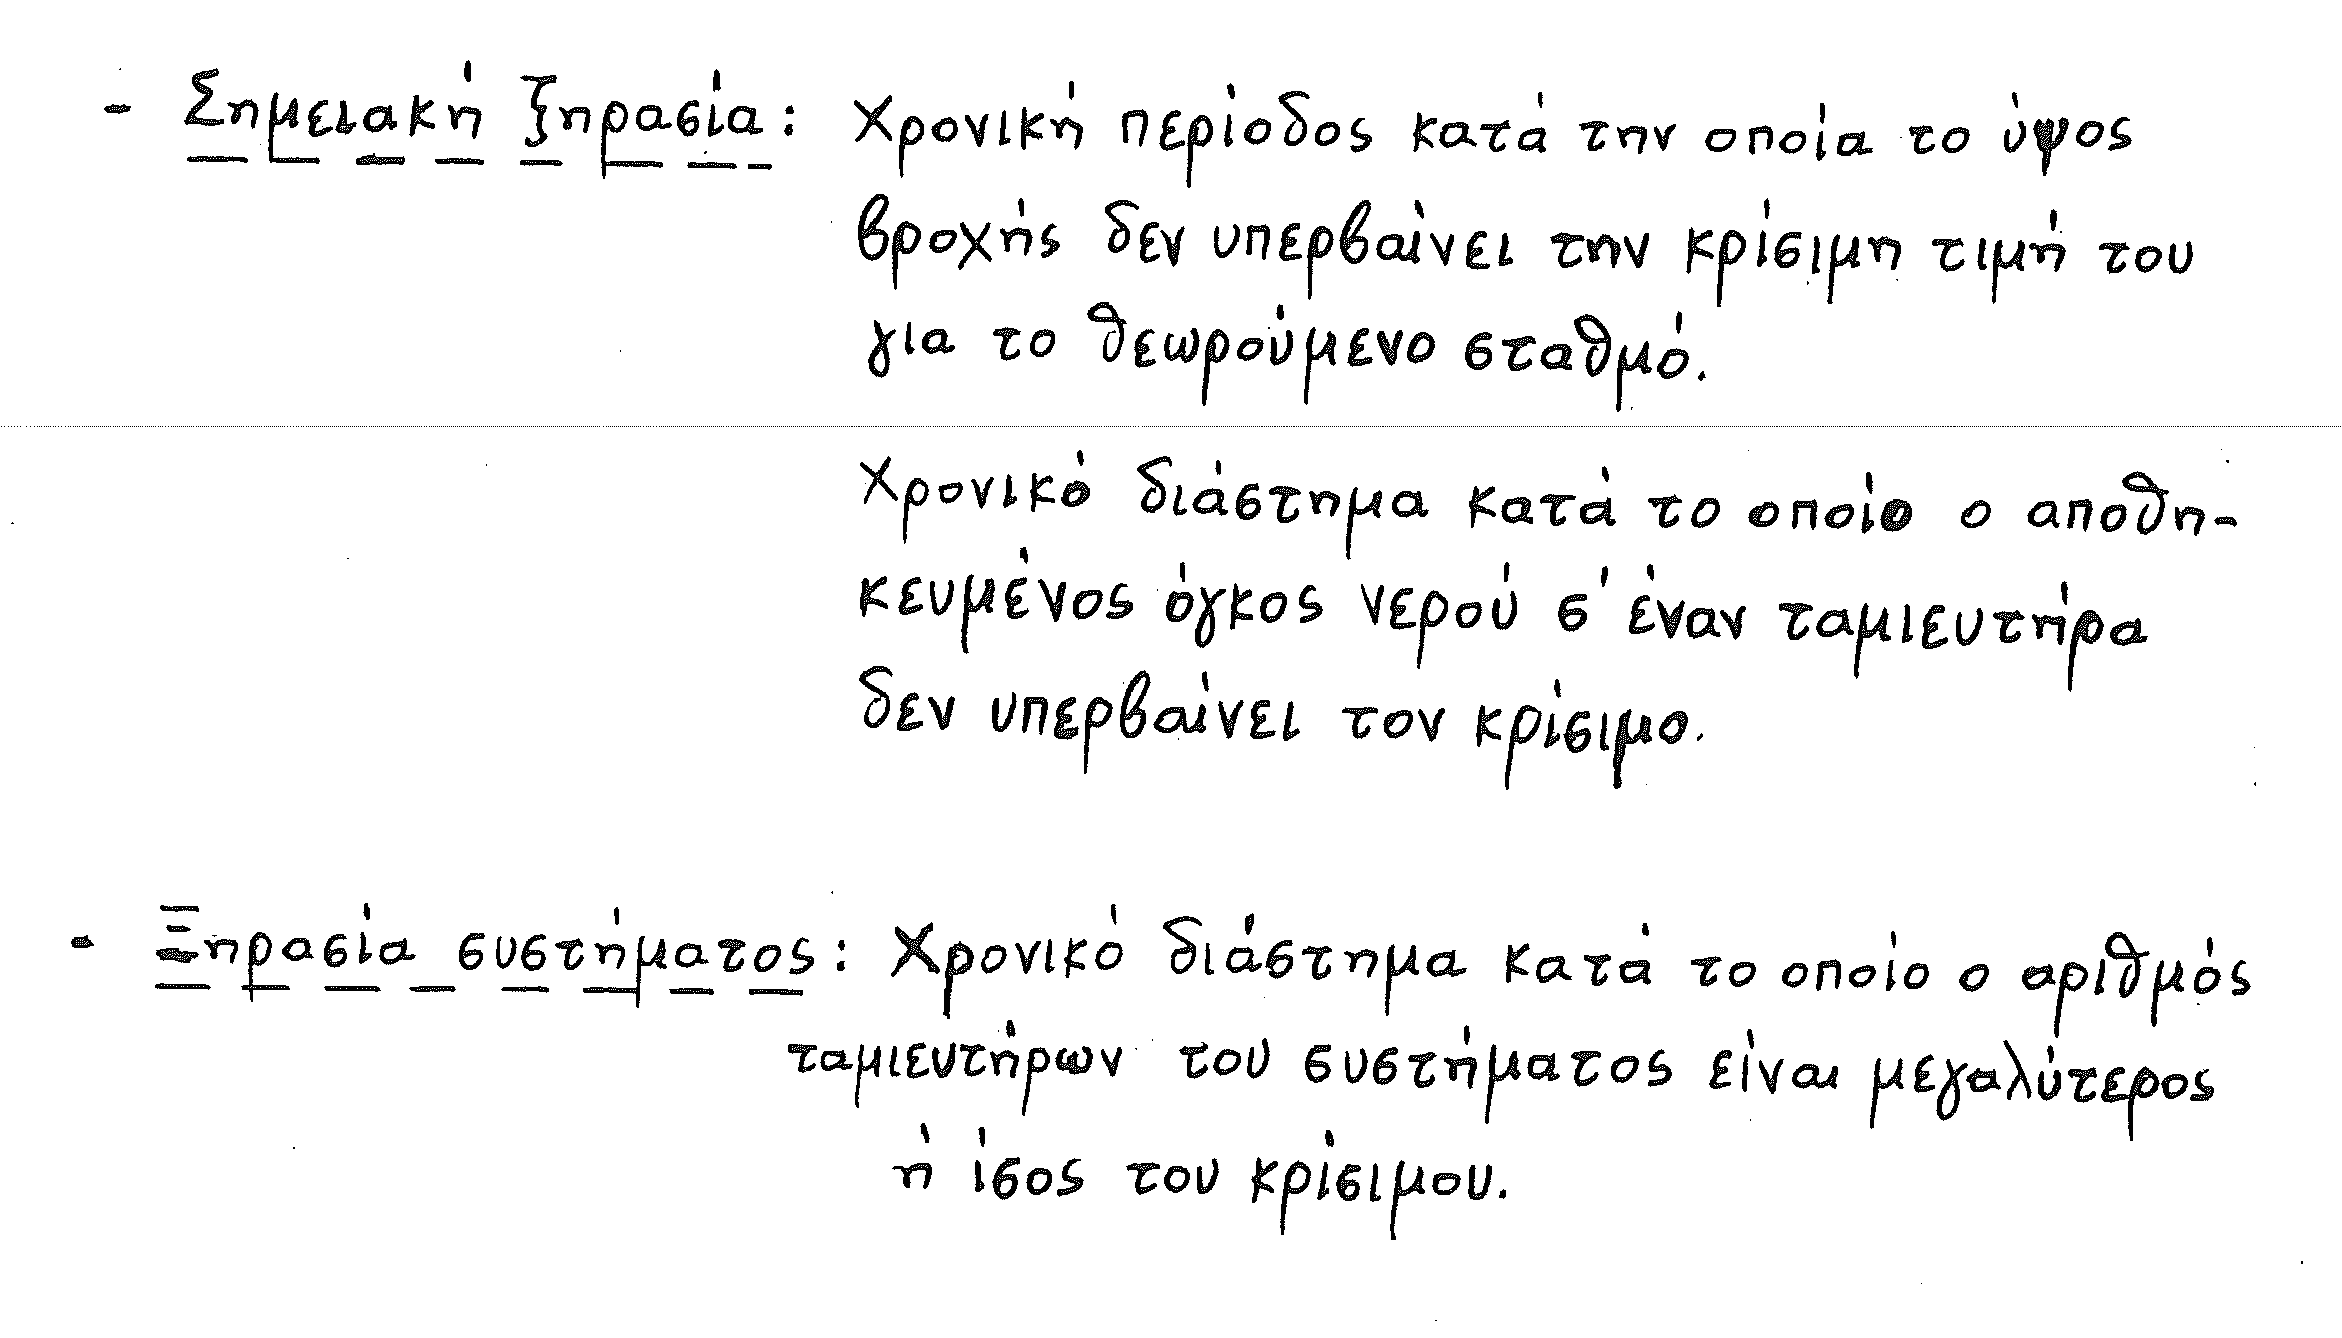 - Σημειακή ξηρασία: Χρονική περίοδος κατά την οποία το ύψος
βροχής δεν υπερβαίνει την κρίσιμη τιμή του
για το θεωρούμενο σταθμό.
Χρονικό διάστημα κατά το οποίο ο αποθη-
κευμένος όγκος νερού σ' έναν ταμιευτήρα
δεν υπερβαίνει τον κρίσιμο.
- Ξηρασία συστήματος: Χρονικό διάστημα κατά το οποίο ο αριθμός
ταμιευτήρων του συστήματος είναι μεγαλύτερος
ή ίσος του κρίσιμου.